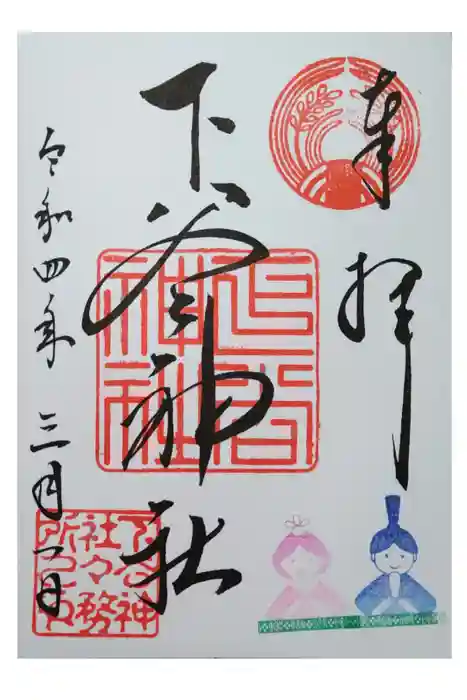 奉拝
下谷神社
下谷神社
下谷神
社々務
所之印
令和四年 三月一日